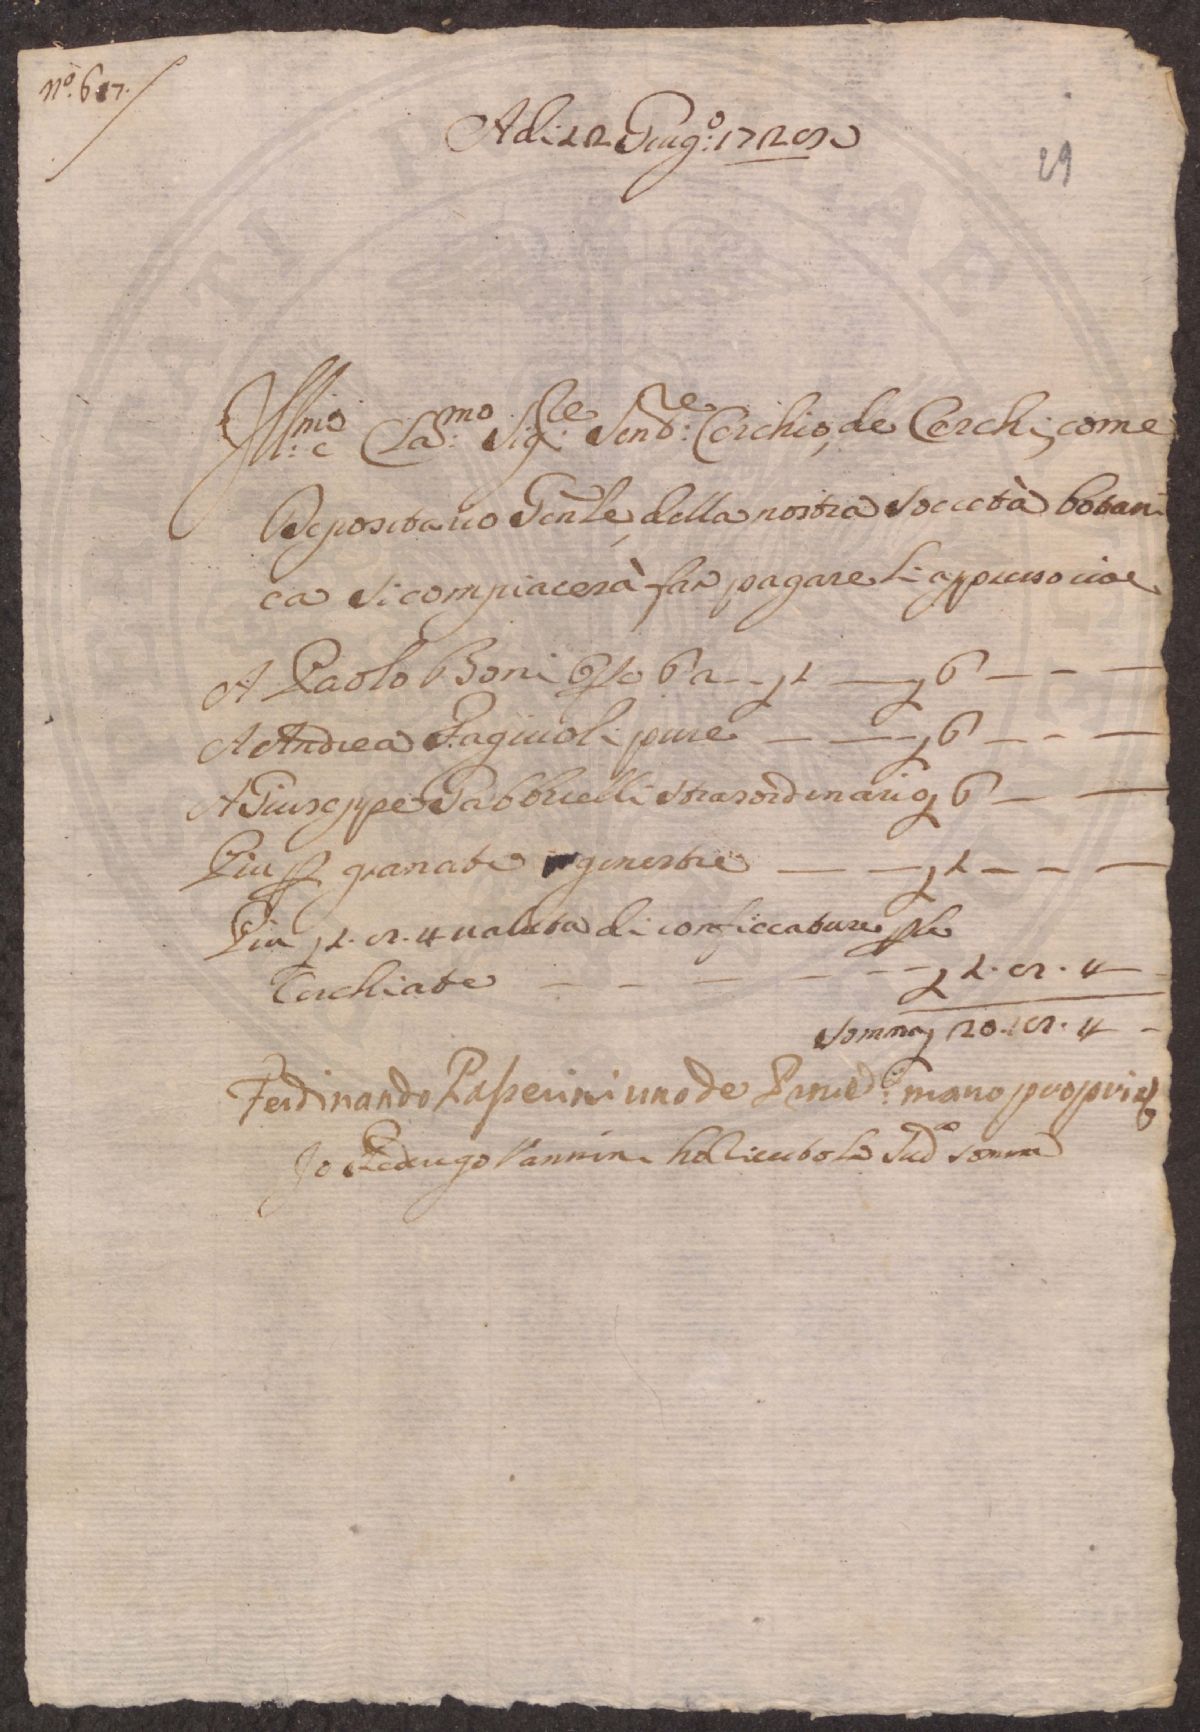 N.º 617.
29
Adi 12 Giug:º 1725
Ill:mo e Cla:mo Sig:re Sen:re Cerchio de Cerchi, come
Depositario Gen:le della nostra Società botani
ca si compiacerà far pagare li appresso cioè
A Paolo Boni 6 — — — 6 — — —
A Andrea Fagiuoli pure — — — 6 — — —
A Giuseppe Gabbrielli Straordinario 6 — —
Piu granate ginestre — — — 1 — — —
Piu 1. 5. 4 valuta di conficcature ple
Cerchiate — — — — — 1. 5. 4 —
Somma 20. 5. 4 —
Ferdinando Passerini uno de mano propria
Io Vannini ho riceuto la Sud:a somma